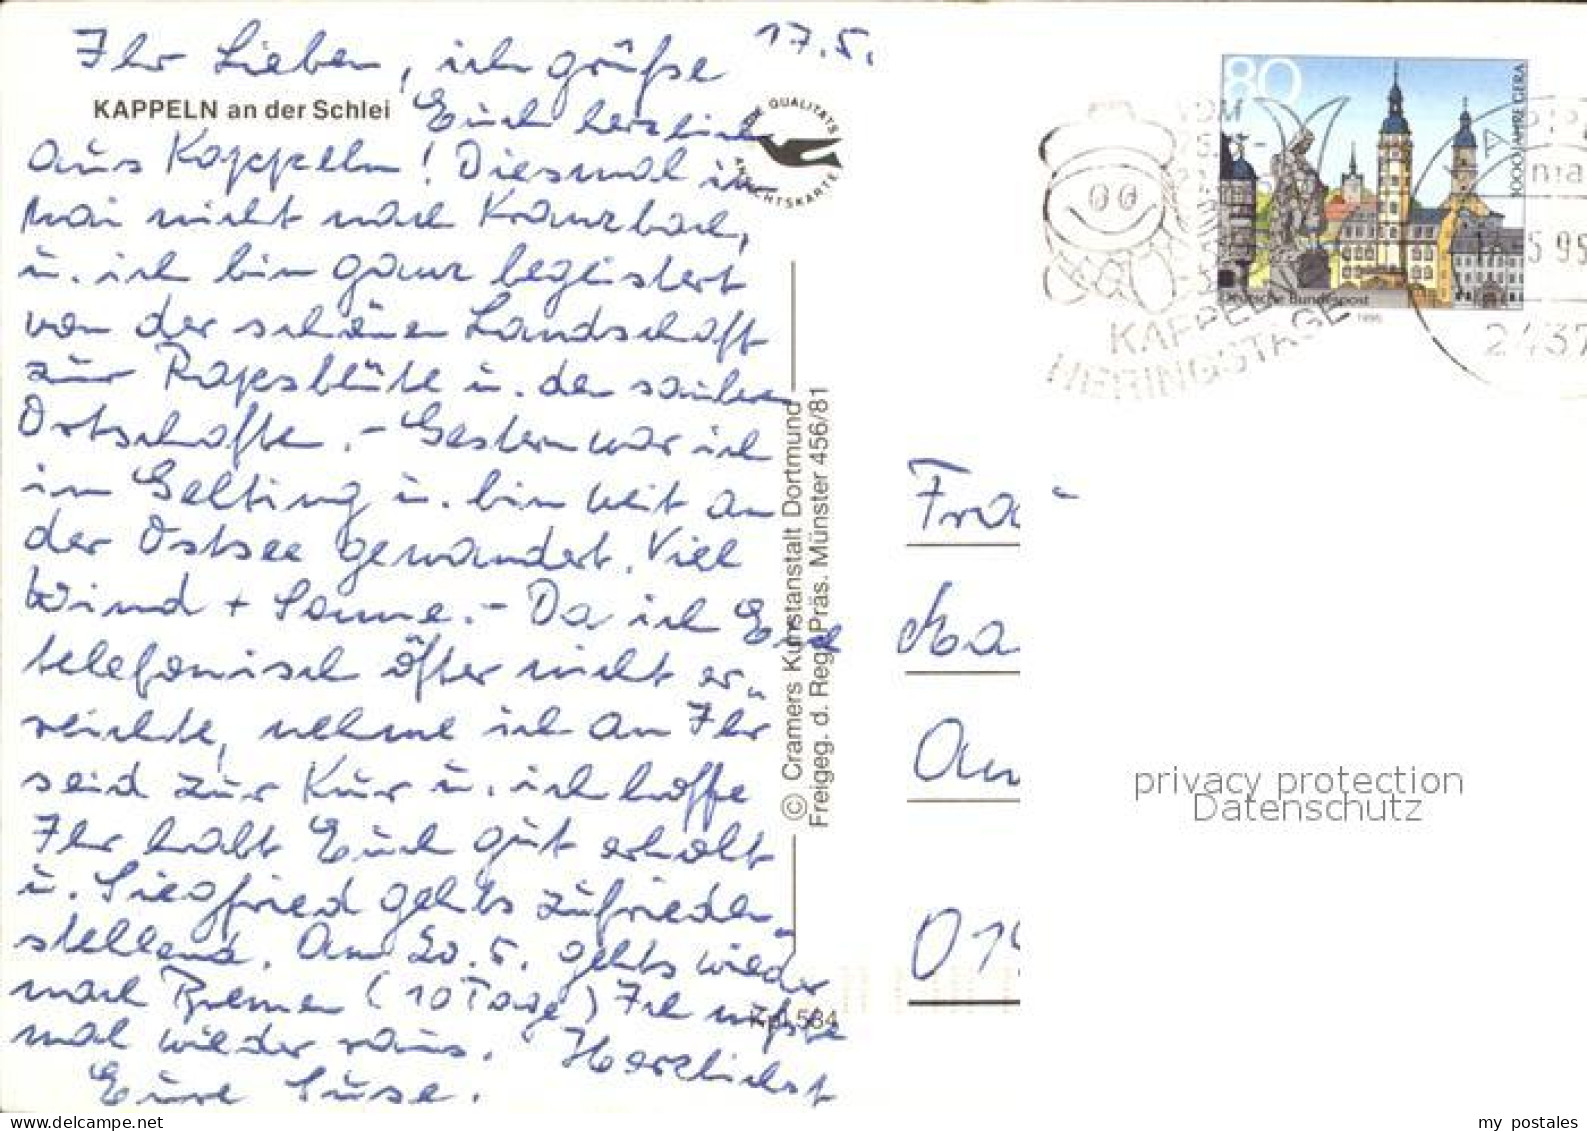 17.5.
Ihr Lieben, ich grüße
KAPPELN an der Schlei
Euch herzlich
aus Kappeln! Diesmal im
Mai nicht nach Kranzbach,
u. ich bin ganz begeistert
von der schönen Landschaft
zur Rapsblüte u. den saubern
Ortschaften. – Gestern war ich
in Gelting u. bin weit an
der Ostsee gewandert. Viel
Wind + Sonne. – Da ich Euch
telefonisch öfter nicht er-
reichte, nehme ich an Ihr
seid zur Kur u. ich hoffe
Ihr habt Euch gut erholt
u. Siegfried gehts zufrieden-
stellend. Am 20.5. gehts wieder
nach Bremen (10 Tage) Ich müßte
mal wieder raus. Herzlichst
Eure Suse.
QUALITÄTS
ANSICHTSKARTE
© Cramers Kunstanstalt Dortmund
Freigeg. d. Reg. Präs. Münster 456/81
584
80
1000 JAHRE GERA
Deutsche Bundespost
1995
VOM
KAPPELN
HERINGSTAGE
5 95
2437
Frau
Ma
Am
01
privacy protection
Datenschutz
my postales